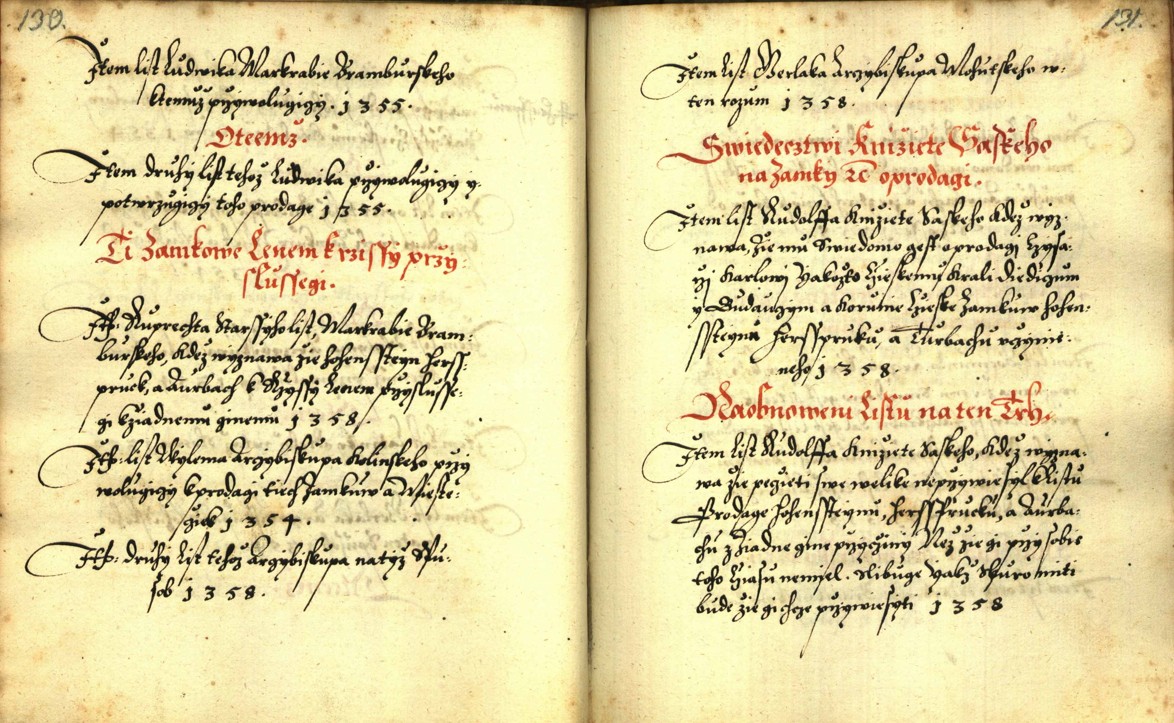 130.
Item list Ludwika Markrabie Bramburskeho
ktemuz przywolugiczy. 1355.
Oteemz.
Item druhy list tehoz Ludwika przywolugiczy y
potwrzugiczy toho prodage 1355.
Ti Zamkowe Lenem k rzissy przy:
slussegi.
Itē: Ruprechta Starssyho list, Markrabie Bram:
burskeho, kdez wyznawa zie hohenssteyn herss:
pruck, a Aurbach k Rzyssy Lenem przyslusse:
gi kziadnemu ginemu 1358.
Itē: list Wylema Arczybiskupa Kolinskeho przy
wolugiczy kprodagi tiech Zamkuw a Mieste:
czek 1354.
Itē: druhy list tehoz Arczybiskupa natyz Spu:
sob 1358.
131.
Item list Gerlaka Arczybiskupa Mohutskeho w:
ten rozum 1358.
Swiedecztwi Knizete Saskeho
na Zamky oprodagi.
Item list Rudolffa Knizete Saskeho kdez wyz:
nawa, zie mu Swiedomo gest oprodagi Czysa:
rzi Karlowi Yakozto Czieskemu Krali diediczum
y Buduczym a Korunie Czieske Zamkuw hohen:
sstegna Hersspruku, a Turbachu vczynie:
neho 1358.
Na obnoweni Listu na ten Trh.
Item list Rudolffa Knizete Saskeho, kdez wyzna:
wa zie pegieti swe welike neprzywiesyl kListu
Prodage hohensstegnu, Herssprucku, a Aurba:
chu z ziadne gine przycziny Nez zie gi przy sobie
toho cziasu nemiel. Slibuge yakz Skuro miti
bude zie gi chcze przywiesyti 1358